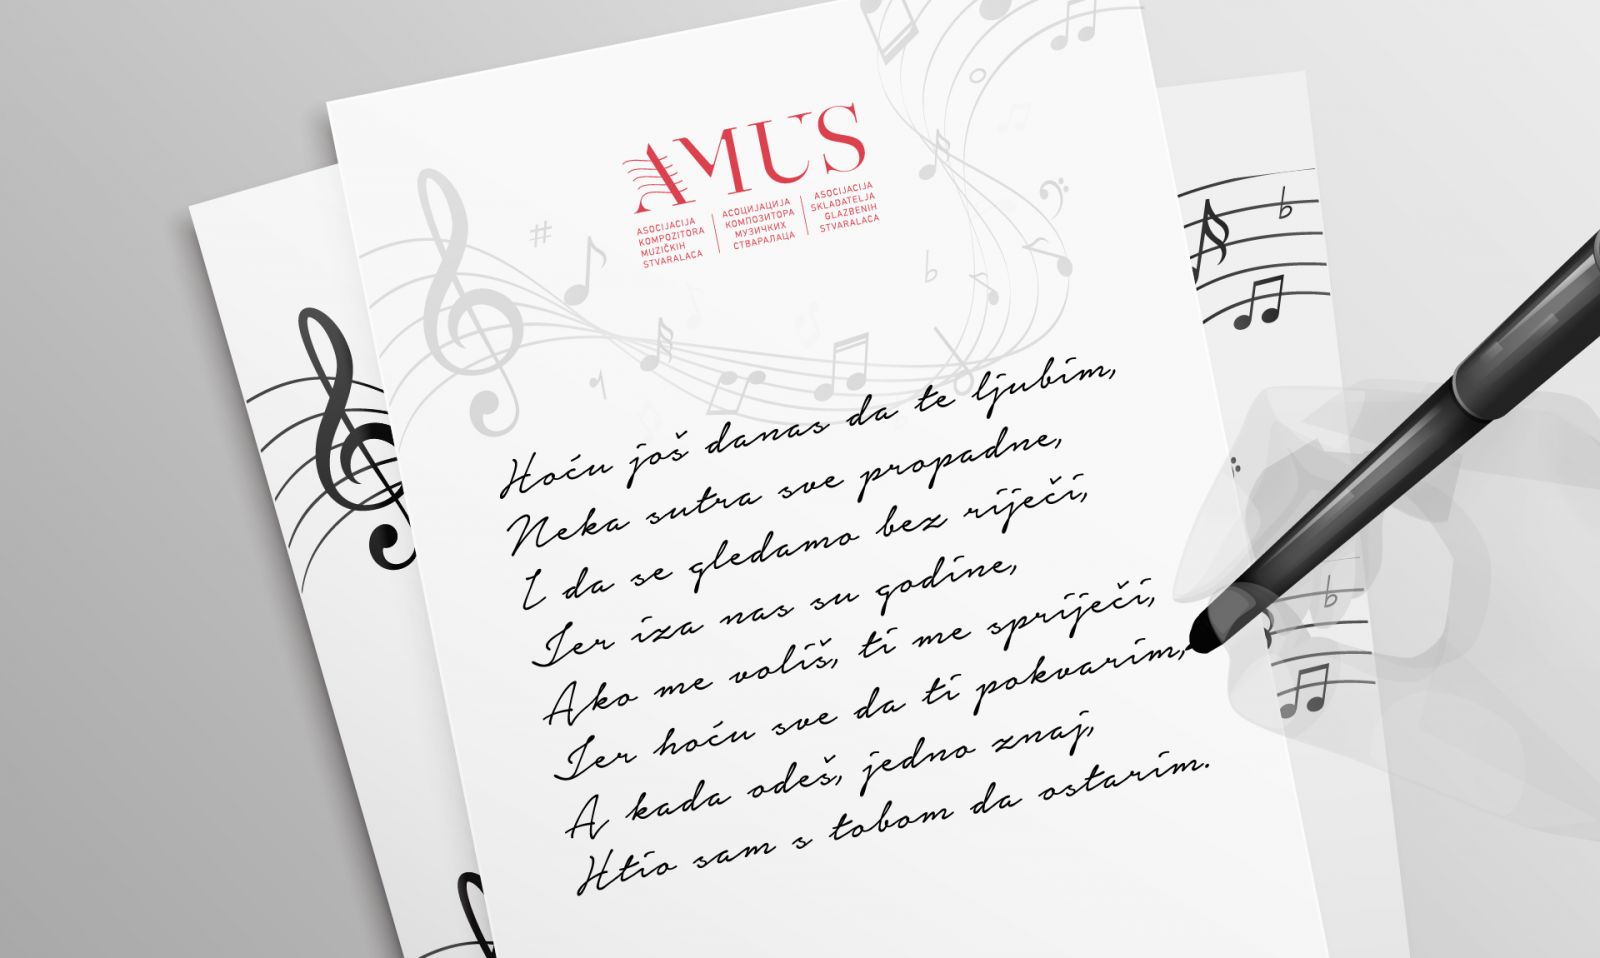 AMUS
ASOCIJACIJA
KOMPOZITORA
MUZIČKIH
STVARALACA
АСОЦИЈАЦИЈА
КОМПОЗИТОРА
МУЗИЧКИХ
СТВАРАЛАЦА
ASOCIJACIJA
SKLADATELJA
GLAZBENIH
STVARALACA
Hoću još danas da te ljubim,
Neka sutra sve propadne,
I da se gledamo bez riječi,
Jer iza nas su godine,
Ako me voliš, ti me spriječi,
Jer hoću sve da ti pokvarim,
A kada odeš, jedno znaj,
Htio sam s tobom da ostarim.